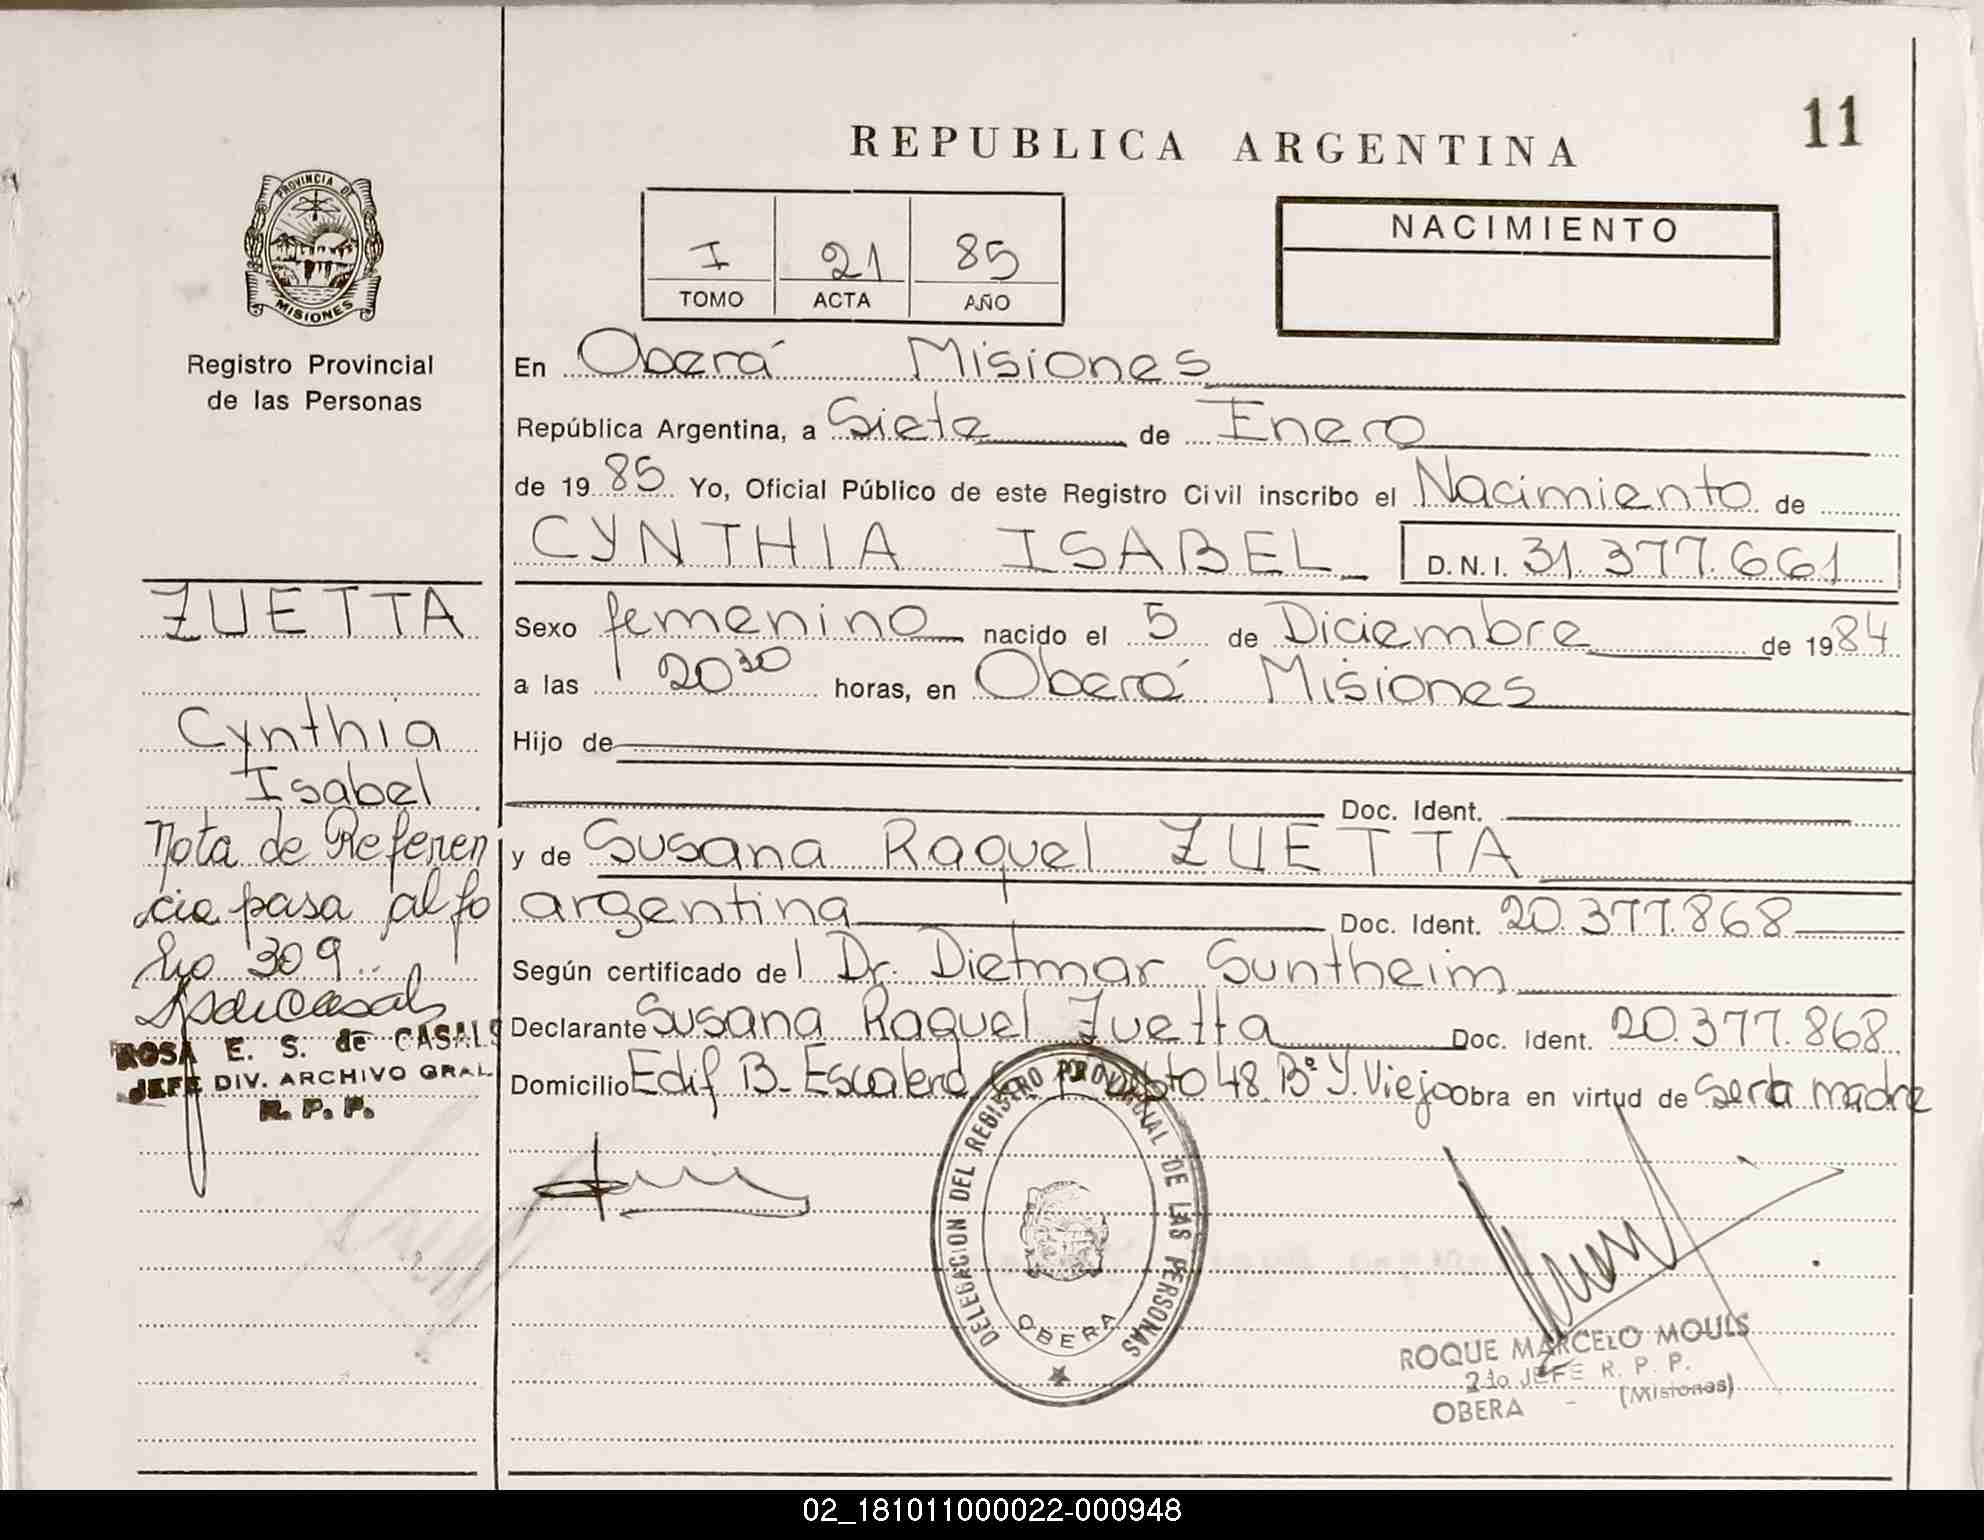 11
REPUBLICA ARGENTINA
PROVINCIA DE
MISIONES
I 21 85
TOMO ACTA AÑO
NACIMIENTO
Registro Provincial
de las Personas
En Oberá Misiones
República Argentina, a Siete de Enero
de 1985 Yo, Oficial Público de este Registro Civil inscribo el Nacimiento de
CYNTHIA ISABEL D.N.I. 31.377.661
Sexo femenino nacido el 5 de Diciembre de 1984
a las 20 30 horas, en Oberá Misiones
Hijo de
Doc. Ident.
y de Susana Raquel ZUETTA
argentina Doc. Ident. 20.377.868
Según certificado del Dr. Dietmar Suntheim
Declarante Susana Raquel Zuetta Doc. Ident. 20.377.868
Domicilio Edif B. Escalera Dpto 48 Bº Y. Viejo Obra en virtud de ser la madre
ZUETTA
Cynthia
Isabel
Nota de Referen
cia pasa al fo
lio 309..
ROSA E. S. de CASALS
JEFE DIV. ARCHIVO GRAL
R. P. P.
DELEGACION DEL REGISTRO PROVINCIAL DE LAS PERSONAS
OBERA
ROQUE MARCELO MOULS
2do JEFE R. P. P.
OBERA - (Misiones)
02_181011000022-000948